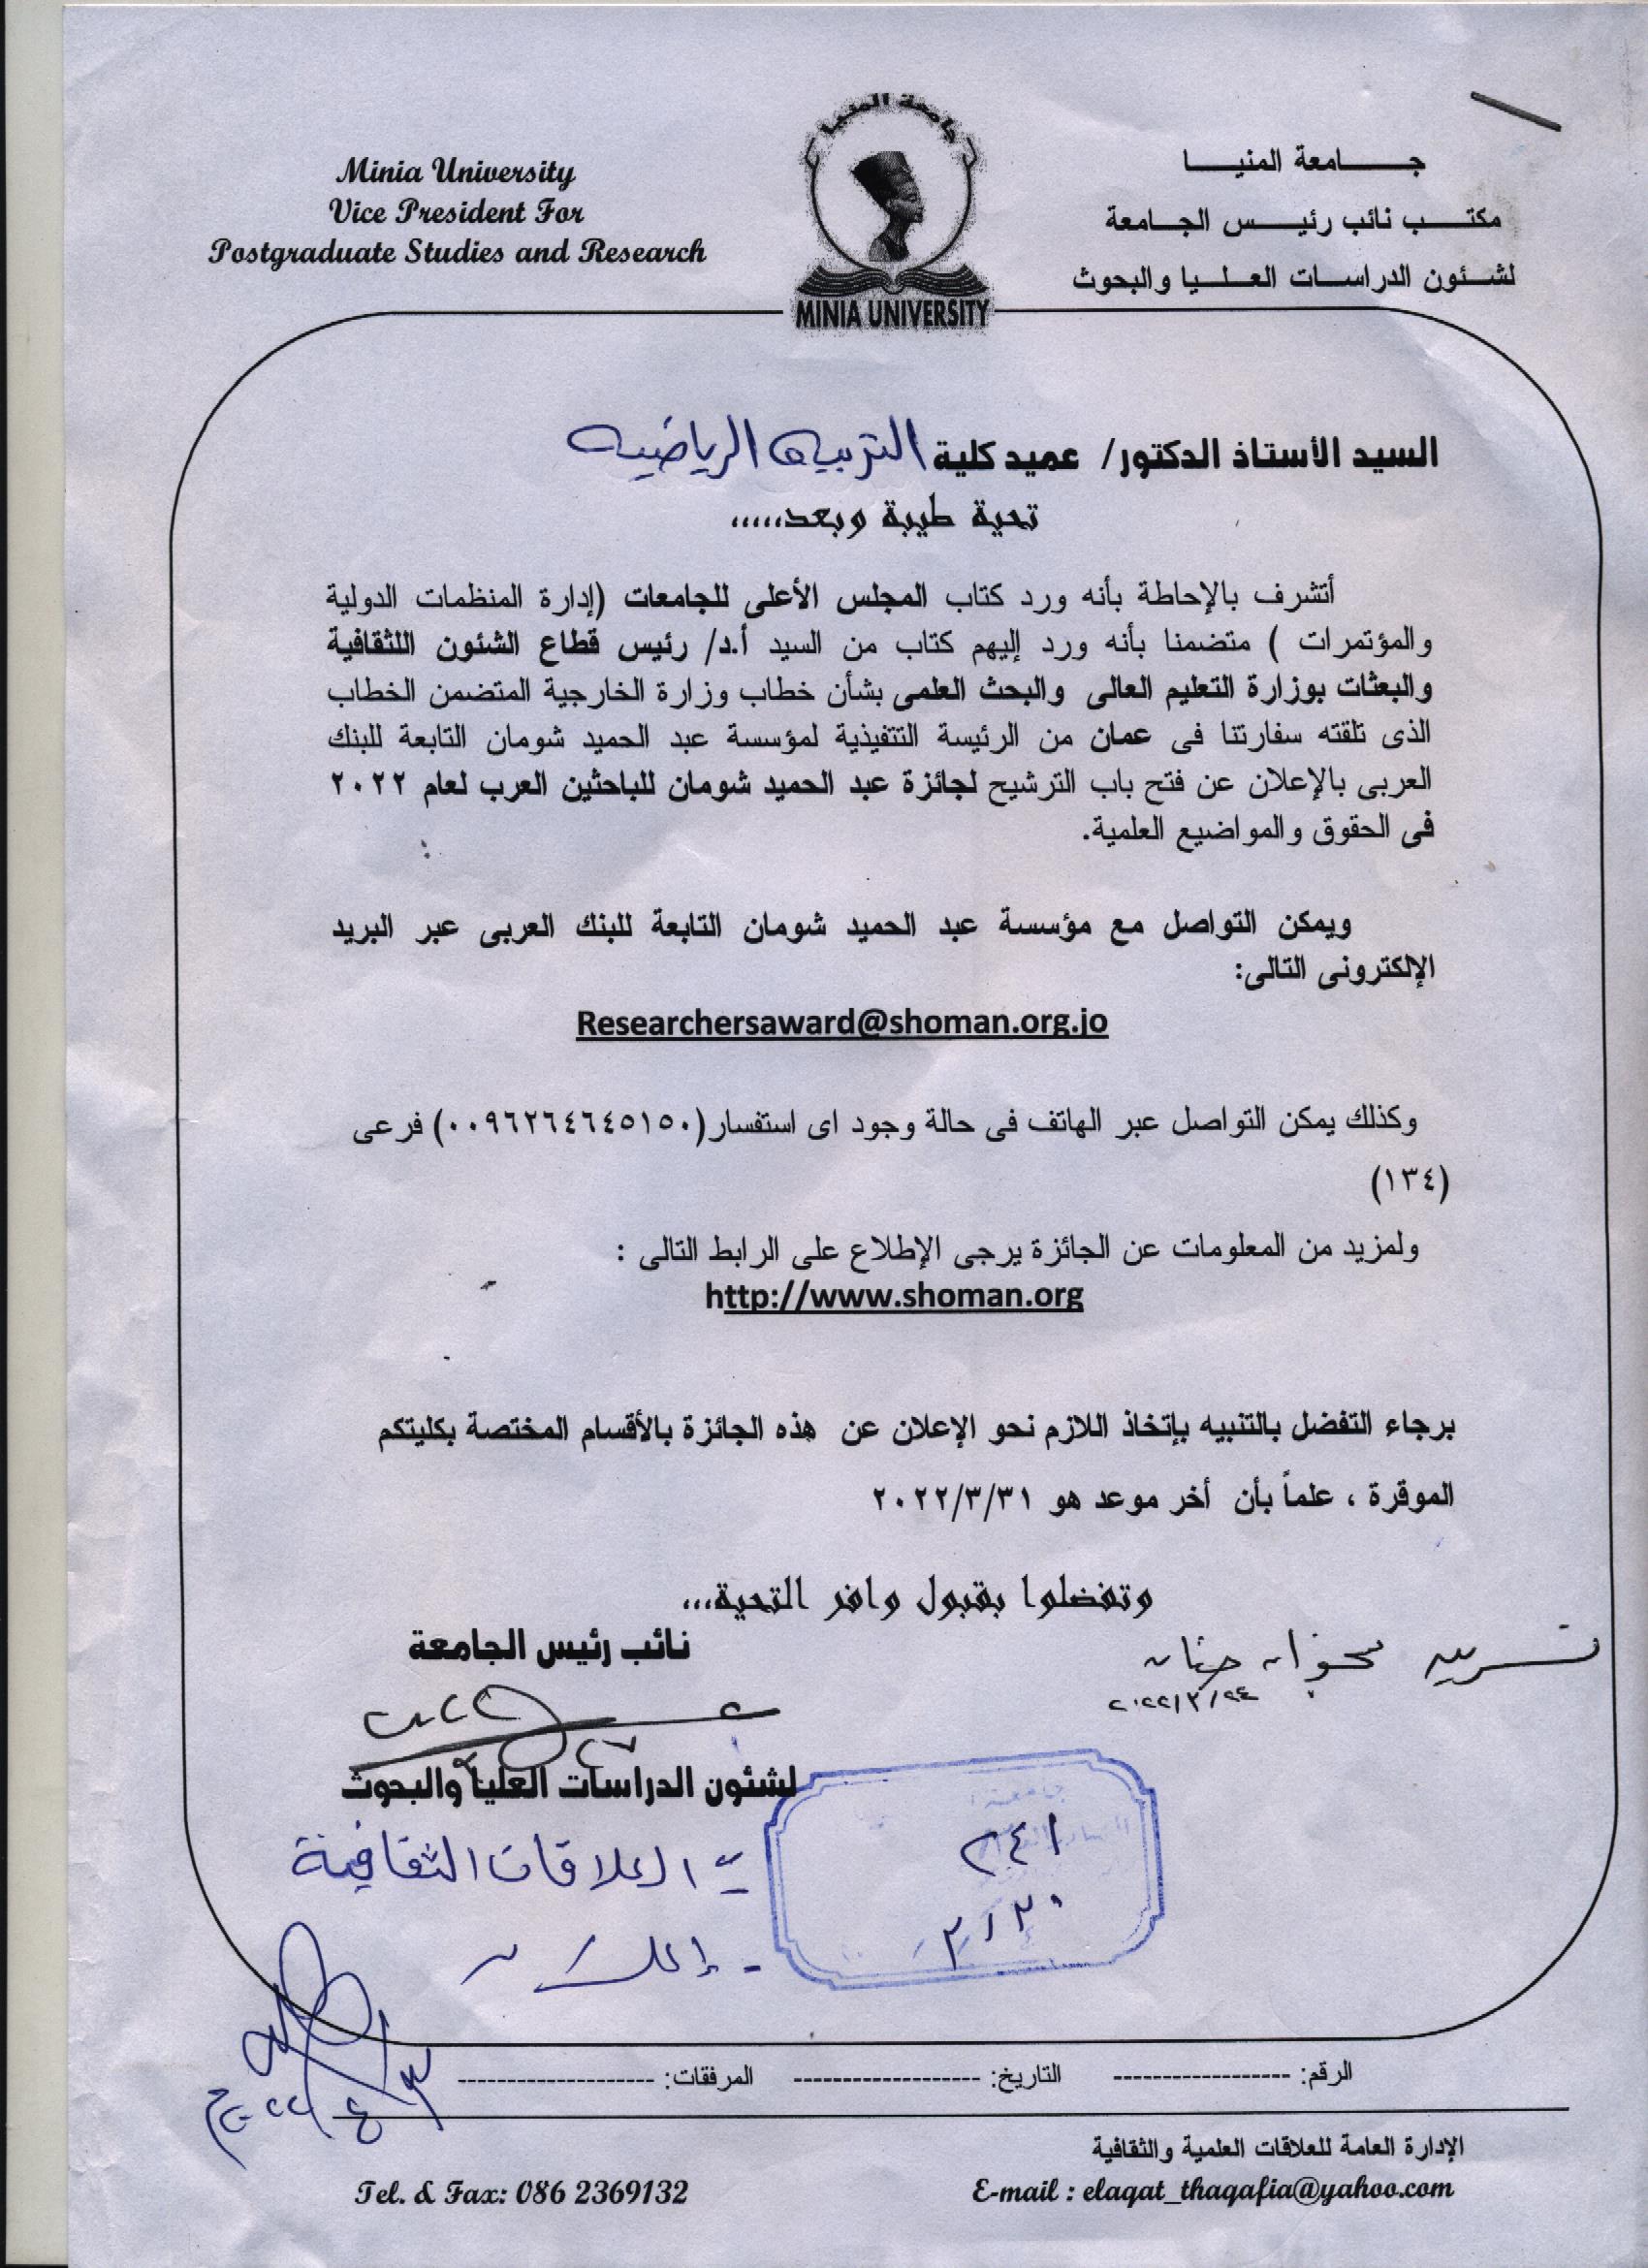 Minia University
Vice President For
Postgraduate Studies and Research
جامعة المنيا
MINIA UNIVERSITY
جـــامعة المنيـــا
مكتـــب نائب رئيـــس الجـامعة
لشـئون الدراسـات العـلـيا والبحوث
السيد الأستاذ الدكتور/ عميد كلية التربية الرياضية
تحية طيبة وبعد،،،،،
أتشرف بالإحاطة بأنه ورد كتاب المجلس الأعلى للجامعات (إدارة المنظمات الدولية
والمؤتمرات ) متضمنا بأنه ورد إليهم كتاب من السيد أ.د/ رئيس قطاع الشئون اللثقافية
والبعثات بوزارة التعليم العالى والبحث العلمى بشأن خطاب وزارة الخارجية المتضمن الخطاب
الذى تلقته سفارتنا فى عمان من الرئيسة التتفيذية لمؤسسة عبد الحميد شومان التابعة للبنك
العربى بالإعلان عن فتح باب الترشيح لجائزة عبد الحميد شومان للباحثين العرب لعام ٢٠٢٢
فى الحقوق والمواضيع العلمية.
ويمكن التواصل مع مؤسسة عبد الحميد شومان التابعة للبنك العربى عبر البريد
الإلكترونى التالى:
Researchersaward@shoman.org.jo
وكذلك يمكن التواصل عبر الهاتف فى حالة وجود اى استفسار(٠٠٩٦٢٦٤٦٤٥١٥٠) فرعى
(١٣٤)
ولمزيد من المعلومات عن الجائزة يرجى الإطلاع على الرابط التالى :
http://www.shoman.org
برجاء التفضل بالتنبيه بإتخاذ اللازم نحو الإعلان عن هذه الجائزة بالأقسام المختصة بكليتكم
الموقرة ، علماً بأن أخر موعد هو ٢٠٢٢/٣/٣١
وتفضلوا بقبول وافر التحية،،،
نائب رئيس الجامعة
٢٠٢٢/٣/٢٤
لشئون الدراسات العليا والبحوث
٢٤١
٣/٣٠
العلاقات الثقافية
- إعلان
الرقم: ------------------ التاريخ: ------------------- المرفقات: --------------------
الإدارة العامة للعلاقات العلمية والثقافية
Tel. & Fax: 086 2369132
E-mail : elaqat_thaqafia@yahoo.com